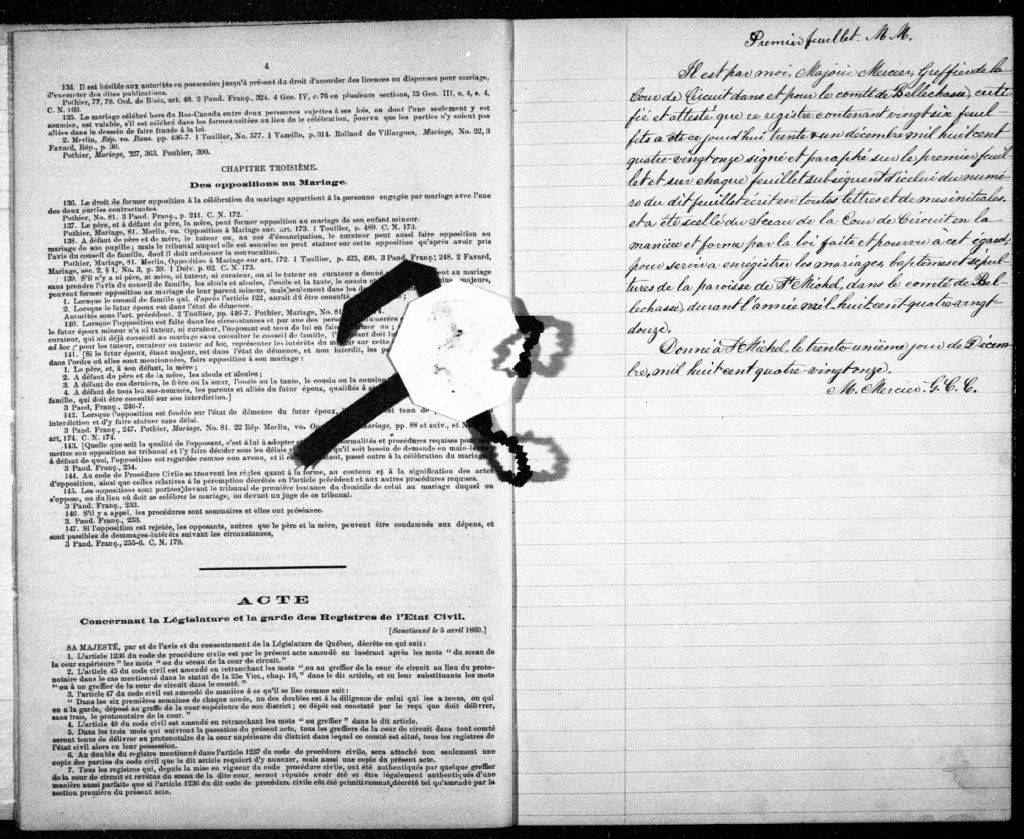 4
134. Il est loisible aux autorités en possession jusqu'à présent du droit d'accorder des licences ou dispenses pour mariage,
d'exempter des dites publications.
Pothier, 77, 78. Ord. de Blois, art. 40. 2 Pand. Franç., 324. 4 Geo. IV, c. 76 en plusieurs sections, 35 Geo. III, c, 4, s. 4,
C. N. 169.
135. Le mariage célébré hors du Bas-Canada entre deux personnes sujettes à ses lois, ou dont l'une seulement y est
soumise, est valable, s'il est célébré dans les formes usitées au lieu de la célébration, pourvu que les parties n'y soient pas
allées dans le dessein de faire fraude à la loi.
2 Merlin, Rép. vo. Bans. pp. 436-7. 1 Toullier, No. 577. 1 Vazeille, p. 314. Rolland de Villargues, Mariage, No. 22, 3
Favard, Rép., p. 30.
Pothier, Mariage, 327, 363. Pouhier, 390.
CHAPITRE TROISIÈME.
Des oppositions au Mariage.
136. Le droit de former opposition à la célébration du mariage appartient à la personne engagée par mariage avec l'une
des deux parties contractantes.
Pothier, No. 81. 3 Pand. Franç., p. 241. C. N. 172.
137. Le père, et à défaut du père, la mère, peut former opposition au mariage de son enfant mineur.
Pothier, Mariage, 81. Merlin, vo. Opposition à Mariage sur. art. 173. 1 Toullier, p. 489. C. N. 173.
138. A défaut de père et de mère, le tuteur ou, au cas d'émancipation, le curateur peut aussi faire opposition au
mariage de son pupille; mais le tribunal auquel elle est soumise ne peut statuer sur cette opposition qu'après avoir pris
l'avis du conseil de famille, dont il doit ordonner la convocation.
Pothier, Mariage, 81. Merlin, Opposition à Mariage sur art. 172. 1 Toullier, p. 425, 490. 3 Pand. Franç., 248. 2 Favard,
Mariage, sec. 2, § 1, No. 3, p. 59. 1 Delv. p. 62. C. N. 175.
139. S'il n'y a ni père, ni mère, ni tuteur, ni curateur, ou si le tuteur ou curateur a donné au mariage
sans prendre l'avis du conseil de famille, les aïeuls et aïeules, l'oncle et la tante, le cousin majeurs,
peuvent former opposition au mariage de leur parent mineur, mais seulement dans les
1. Lorsque le conseil de famille qui, d'après l'article 122, aurait dû être consulté
2. Lorsque le futur époux est dans l'état de démence.
Autorités sous l'art. précédent. 2 Toullier, pp. 446-7. Pothier, Mariage, No. 81
140. Lorsque l'opposition est faite dans les circonstances et par une des personnes
le futur époux mineur n'a ni tuteur, ni curateur, l'opposant est tenu de lui en faire
curateur, qui ait déjà consenti au mariage sans consulter le conseil de famille, l'
ad hoc; pour les tuteur, curateur ou tuteur ad hoc, représenter les intérêts du mineur sur cette
141. [Si le futur époux, étant majeur, est dans l'état de démence, et non interdit, les
dans l'ordre où elles sont mentionnées, faire opposition à son mariage:
1. Le père, et, à son défaut, la mère;
2. A défaut du père et de la mère, les aïeuls et aïeules;
3. A défaut de ces derniers, le frère ou la sœur, l'oncle ou la tante, le cousin ou la cousine
4. A défaut de tous les sus-nommés, les parents et alliés du futur époux, qualifiés à
famille, qui doit être consulté sur son interdiction.]
3 Pand. Franç., 246-7.
142. Lorsque l'opposition est fondée sur l'état de démence du futur époux, est tenu de
interdiction et d'y faire statuer sans délai.
3 Pand. Franç., 247. Pothier, Mariage, No. 81. 22 Rép. Merlin, vo. Mariage, pp. 88 et suiv., et
art, 174. C. N. 174.
143. [Quelle que soit la qualité de l'opposant, c'est à lui à adopter formalités et procédures requises pour
mettre son opposition au tribunal et l'y faire décider sous les délais qu'il soit besoin de demande en
à défaut de quoi, l'opposition est regardée comme non avenu, et il est passé outre à la célébration du mariage
3 Pand. Franç., 254.
144. Au code de Procédure Civile se trouvent les règles quant à la forme, au contenu et à la signification des actes
d'opposition, ainsi que celles relatives à la péremption décrétée en l'article précédent et aux autres procédures requises.
145. Les oppositions sont portées devant le tribunal de première instance du domicile de celui au mariage duquel on
s'oppose, ou du lieu où doit se célébrer le mariage, ou devant un juge de ce tribunal.
3 Pand. Franç., 253.
146. S'il y a appel, les procédures sont sommaires et elles ont préséance.
3. Pand. Franç., 253.
147. Si l'opposition est rejetée, les opposants, autres que le père et la mère, peuvent être condamnés aux dépens, et
sont passibles de dommages-intérêts suivant les circonstances,
3 Pand. Franç., 255-6. C. N. 179.
ACTE
Concernant la Législature et la garde des Registres de l'Etat Civil.
[Sanctionné le 5 avril 1869.]
SA MAJESTÉ, par et de l'avis et du consentement de la Législature de Québec, décrète ce qui suit:
1. L'article 1236 du code de procédure civile est par le présent acte amendé en insérant après les mots "du sceau de
la cour supérieure" les mots "ou du sceau de la cour de circuit."
2. L'article 45 du code civil est amendé en retranchant les mots "ou au greffier de la cour de circuit au lieu du proto-
notaire dans le cas mentionné dans le statut de la 25e Vict., chap. 16," dans le dit article, et en leur substituants les mots
"ou à un greffier de la cour de circuit dans le comté."
3. l'article 47 du code civil est amendé de manière à ce qu'il se lise comme suit:
"Dans les six premières semaines de chaque année, un des doubles est à la diligence de celui qui les a tenus, ou qui
en a la garde, déposé au greffe de la cour supérieure de son district; ce dépôt est constaté par le reçu que doit délivrer,
sans frais, le protonotaire de la cour."
4. L'article 48 du code civil est amendé en retranchant les mots "ou greffier" dans le dit article.
5. Dans les trois mois qui suivront la passation du présent acte, tous les greffiers de la cour de circuit dans tout comté
seront tenus de délivrer au protonotaire de la cour supérieure du district dans lequel ce comté est situé, tous les registres de
l'état civil alors en leur possession.
6. Au double du registre mentionné dans l'article 1237 du code de procédure civile, sera attaché non seulement une
copie des parties du code civil que le dit article requiert d'y annexer, mais aussi une copie du présent acte.
7. Tous les registres qui, depuis la mise en vigueur du code procédure civile, ont été authentiqués par quelque greffier
de la cour de circuit et revêtus du sceau de la dite cour, seront réputés avoir été et être légalement authentiqués d'une
manière aussi parfaite que si l'article 1236 du dit code de procédure civile eût été primitivement décrété tel qu'amendé par la
section première du présent acte.
Premier feuillet. M. M.
Il est par moi, Majoric Mercier, Greffier de la
Cour de Circuit dans et pour le comté de Bellechasse, certi
fié et attesté que ce registre contenant vingt six feuil-
lets a été ce jourd'hui trente & un décembre mil huit cent
quatre-vingt onze signé et paraphé sur le premier feuil-
let et sur chaque feuillet subséquent d'icelui du numé-
ro du dit feuillet écrit en toutes lettres et de mes initiales,
et a été scellé du Sceau de la Cour de Circuit en la
manière et forme par la loi faite et pourvu à cet égard,
pour servir à enregistrer les mariages, baptêmes et sépul-
tures de la paroisse de St Michel, dans le comté de Bel-
lechasse, durant l'année mil huit cent quatre-vingt-
douze.
Donné à St Michel, le trente-unième jour de Décem-
bre, mil huit cent quatre-vingt onze.
M. Mercier. G. C. C.